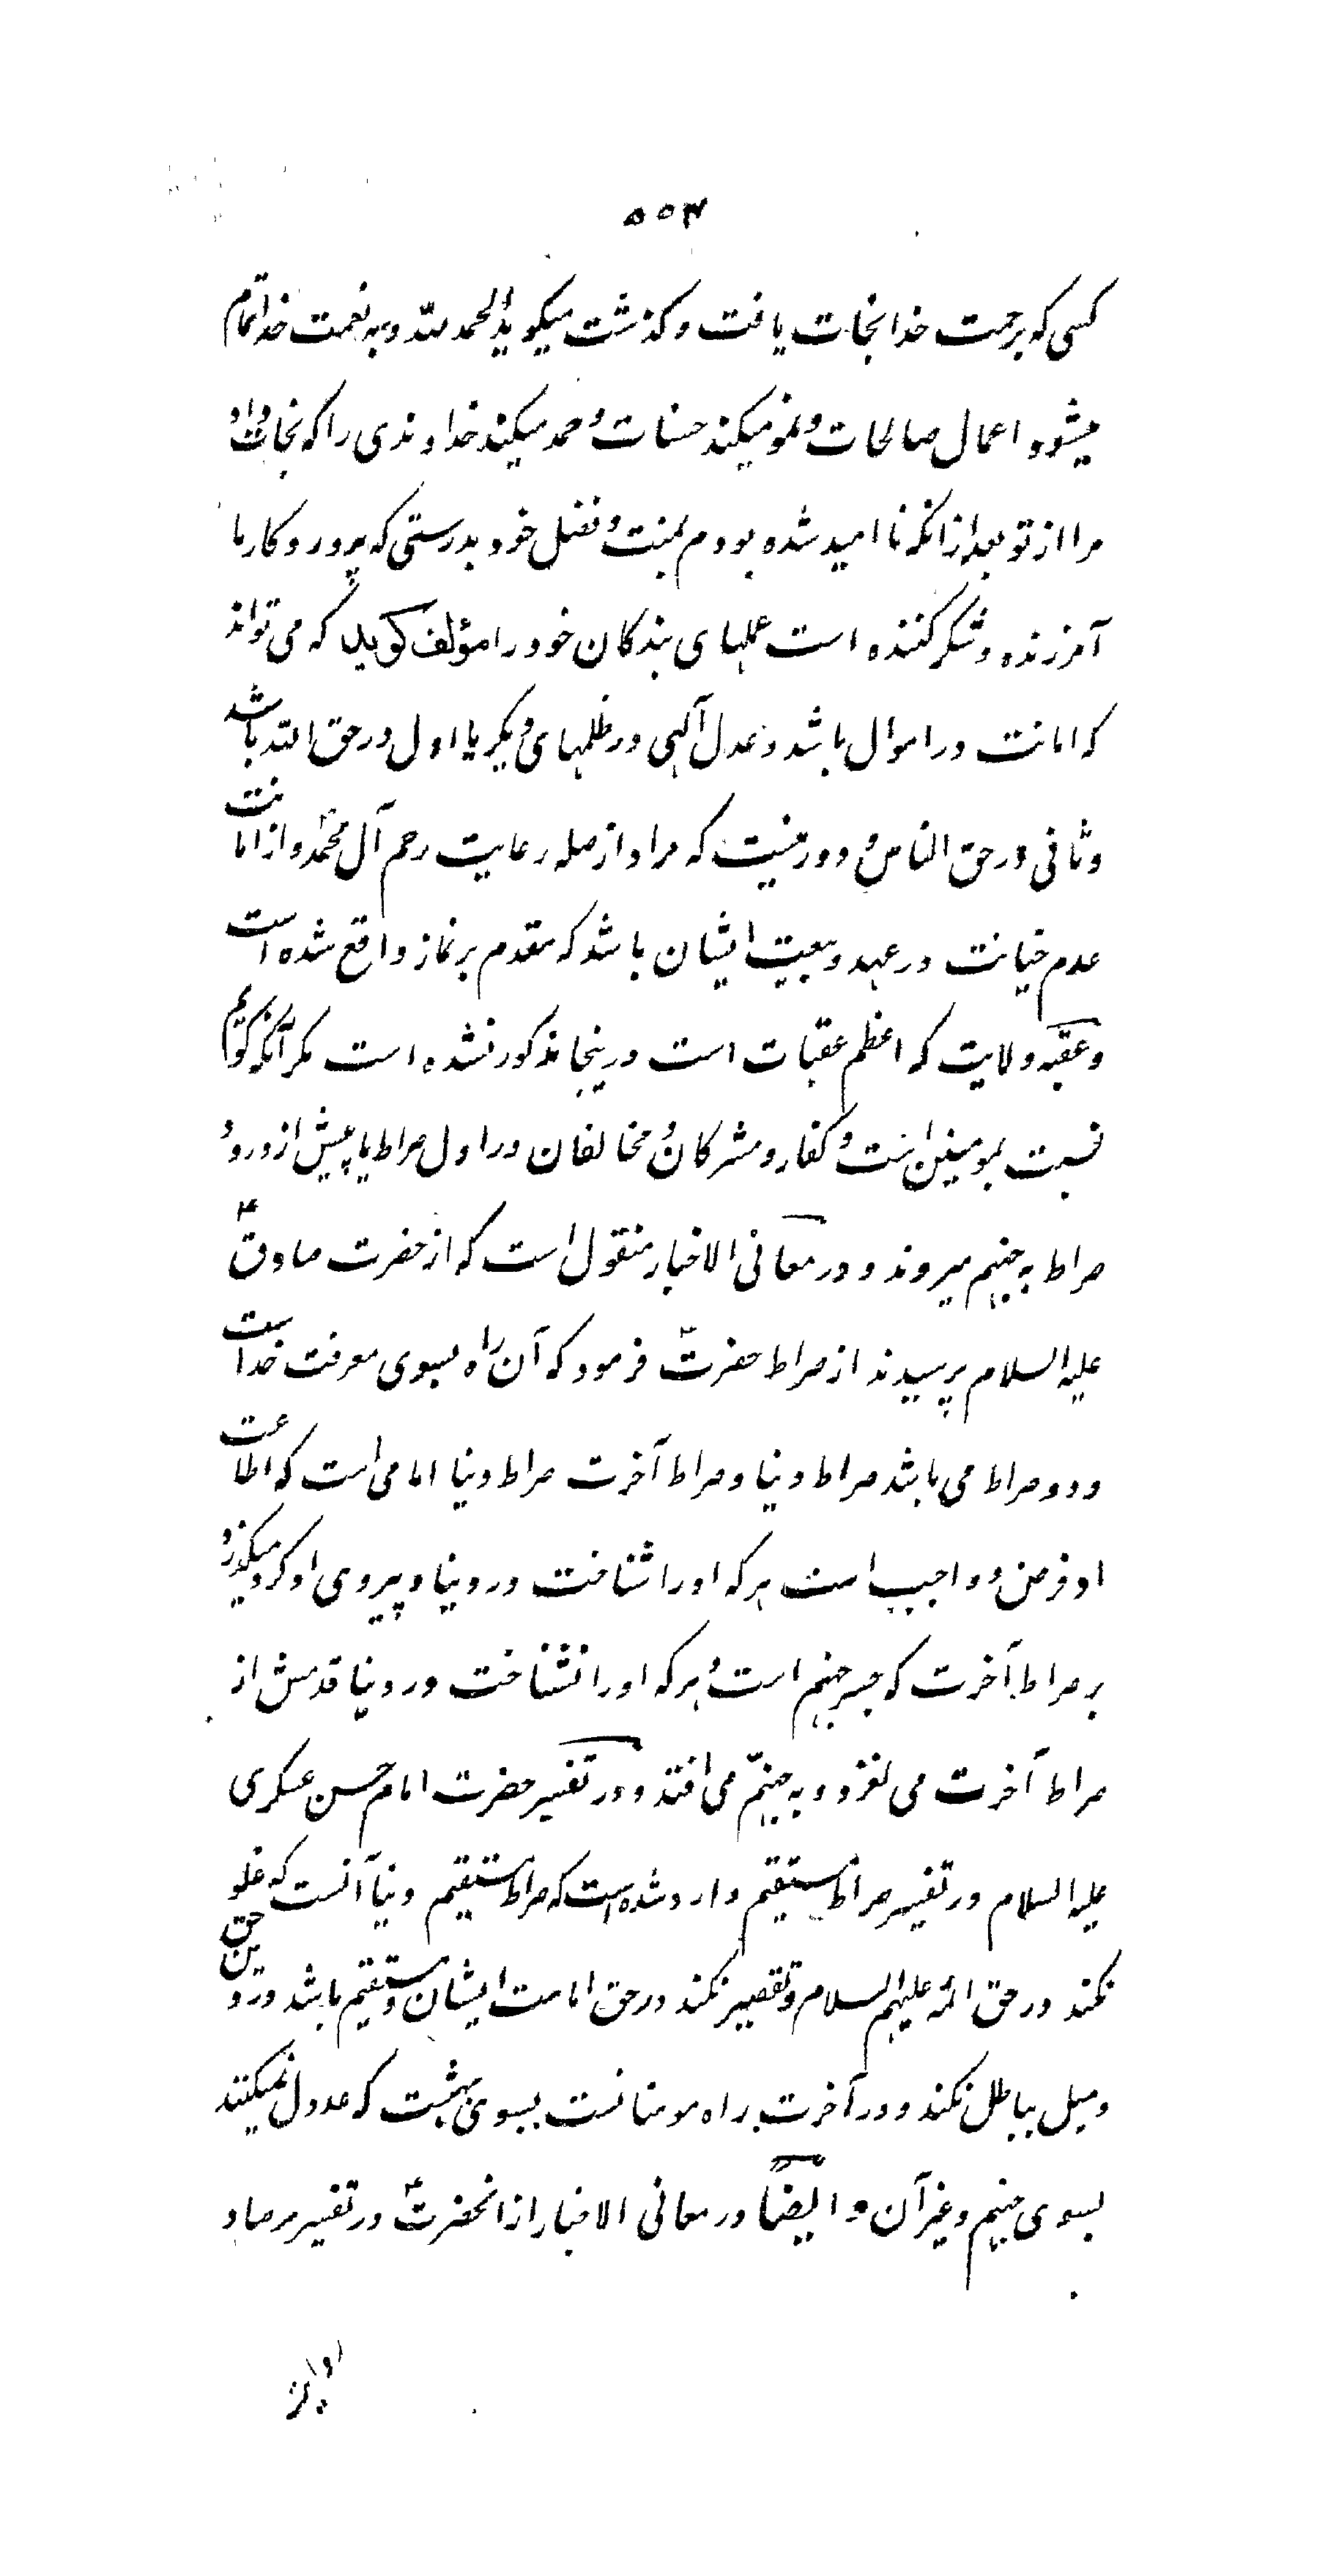 ۵۵۴
کسی که برحمت خدا نجات یافت و کذشت میکوید الحمد لله و به نعمت خدا تمام
میشود اعمال صالحات و نمو میکند حسنات و حمد میکند خداوندی را که نجات داد
مرا از تو بعد از انکه نا امید شده بودم بمنت و فضل خود بدرستی که پرورد کار ما
آمرزنده و شکر کننده است عملهای بندکان خود را مؤلف کوید که می تواند
که امانت در اموال باشد و عدل آلهی در ظلمهای دیکر یا اول در حق الله باشد
و ثانی در حق الناس و دور نیست که مراد از صله رعایت رحم آل محمد و از امانت
عدم خیانت در عهد و بیعت ایشان باشد که مقدم بر نماز واقع شده است
و عقبه ولایت که اعظم عقبات است در ینجا مذکور نشده است مکر آنکه کوئیم
نسبت بمومنین است و کفار و مشرکان و مخالفان در اول صراط یا پیش از ورود
صراط به جهنم میروند و در معانی الاخبار منقول است که از حضرت صادقؑ
علیه السلام پرسیدند از صراط حضرتؑ فرمود که آن راه بسوی معرفت خداست
و دو صراط می باشد صراط دنیا و صراط آخرت صراط دنیا امامی است که اطاعت
او فرض و واجب است هر که او را شناخت در دنیا و پیروی او کرد میکذرد
بر صراط آخرت که جسر جهنم است و هر که او را نشناخت در دنیا قدمش از
صراط آخرت می لغزد و به جهنّم می افتد و در تفسیر حضرت امام حسن عسکری
علیه السلام در تفسیر صراط مستقیم وارد شده است که صراط مستقیم دنیا آنست که غلو
نکند در حق ائمه علیهم السلام و تقصیر نکند در حق امامت ایشان و مستقیم باشد در دین حق
و میل بباطل نکند و در آخرت براه مومنانست بسوی بهشت که عدول نمیکنند
بسوی جهنم و غیر آن و ایضاً در معانی الاخبار از انحضرتؑ در تفسیر مرصاد